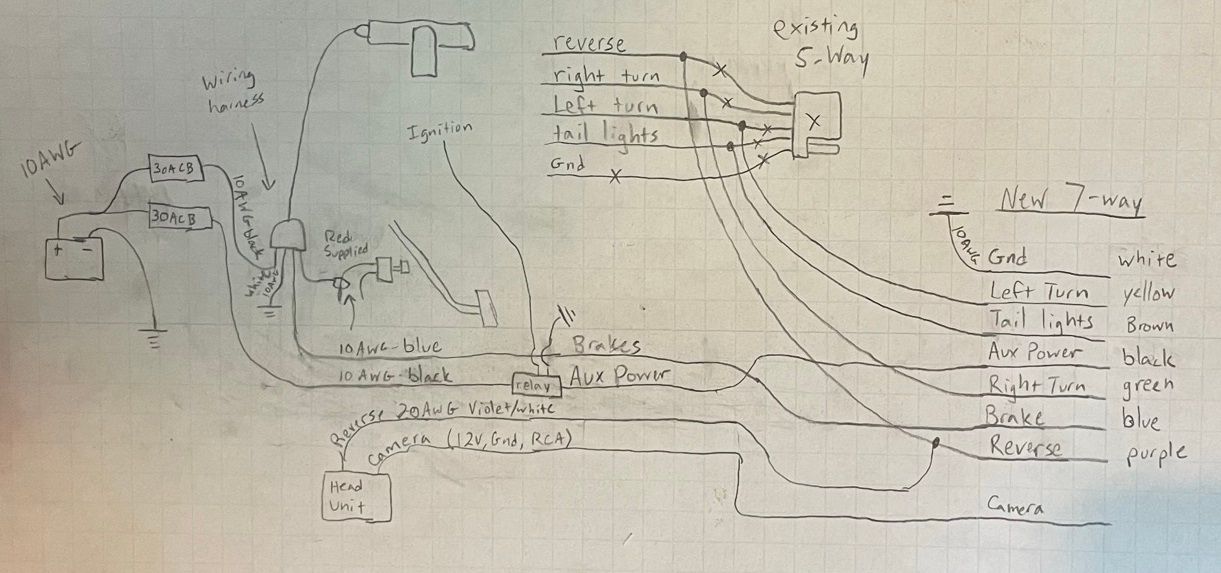 existing
5-Way
reverse
right turn
Left turn
tail lights
Gnd
Wiring
harness
Ignition
10AWG
30ACB
30ACB
10AWG-black
White
10AWG
Red
Supplied
+ -
New 7-way
10AWG
Gnd white
Left Turn yellow
Tail lights Brown
Aux Power black
Right Turn green
Brake blue
Reverse purple
Camera
10AWG-blue Brakes
10AWG-black relay Aux Power
Reverse 20AWG Violet/white
Camera (12V, Gnd, RCA)
Head
Unit